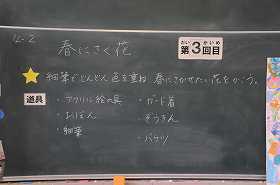 4-2
春にさく花
だい かいめ
第3回目
細筆でどんどん色を重ね 春にさかせたい花をかこう。
道具
・アクリル絵の具
・おぼん
・細筆
・ガード着
・ぞうきん
・バケツ